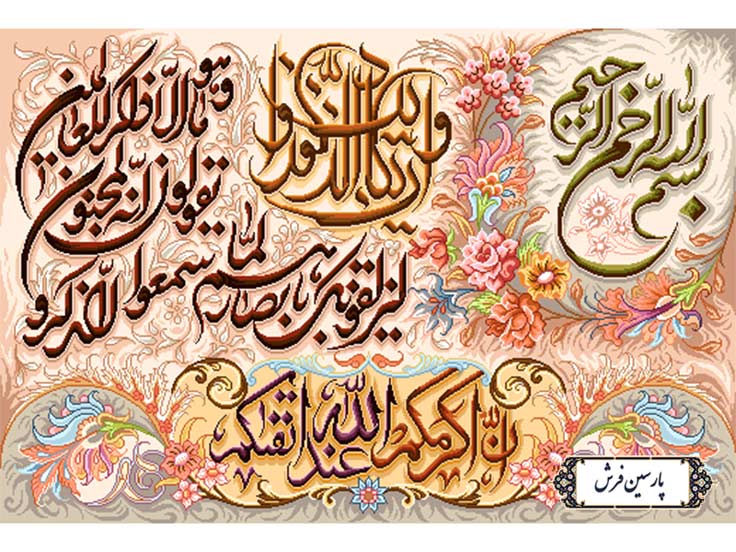 بسم الله الرحمن الرحیم
وان یکاد الذین کفروا
لیزلقونک بابصارهم لما
سمعوا الذکر و
یقولون انه لمجنون
وما هو الا ذکر للعالمین
ان اکرمکم عند الله اتقیکم
پارسین فرش